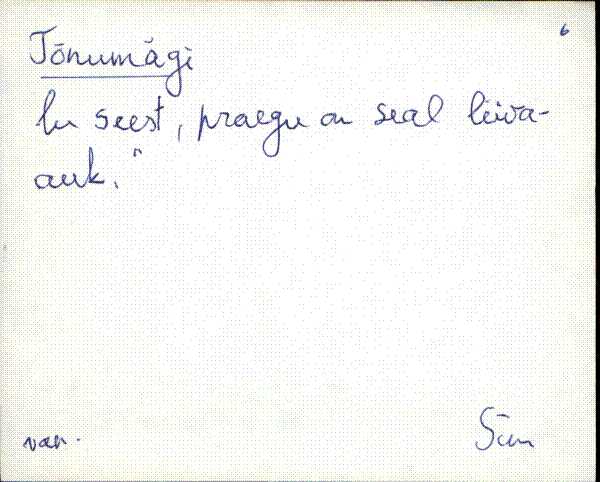 6
Tõnumägi
lu seest, praegu on seal liiva-
auk."
van.